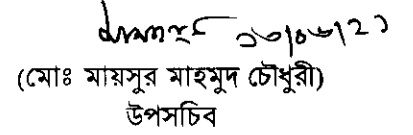 ১৩/০৬/২১
(মোঃ মায়সুর মাহমুদ চৌধুরী)
উপসচিব